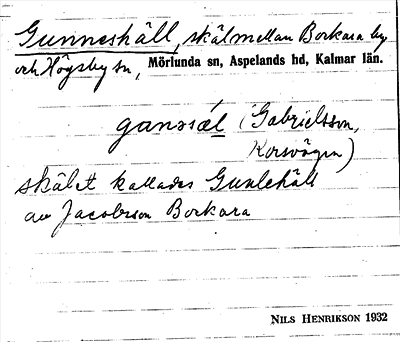 Gunneshäll, skäl mellan Borkara by
och Högsby sn, Mörlunda sn, Aspelands hd, Kalmar län.
(Gabrielsson,
Korsvägen)
skälet kallades Gunlehäll
av Jacobsson Borkara
NILS HENRIKSON 1932